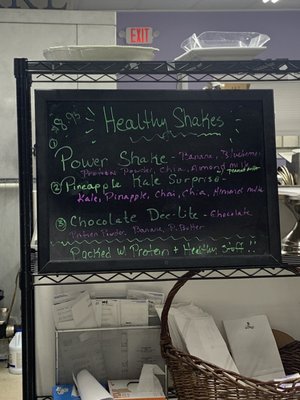 EXIT
Healthy Shakes
① Power Shake - Banana, Blueberries
Protein Powder, Chia, Almond milk
② Pineapple Kale Surprise -
Kale, Pineapple, Chai, Chia, Almond milk
③ Chocolate Dec-lite - Chocolate
Protein Powder, Banana, P. Butter
Packed w/ Protein + Healthy Stuff!!